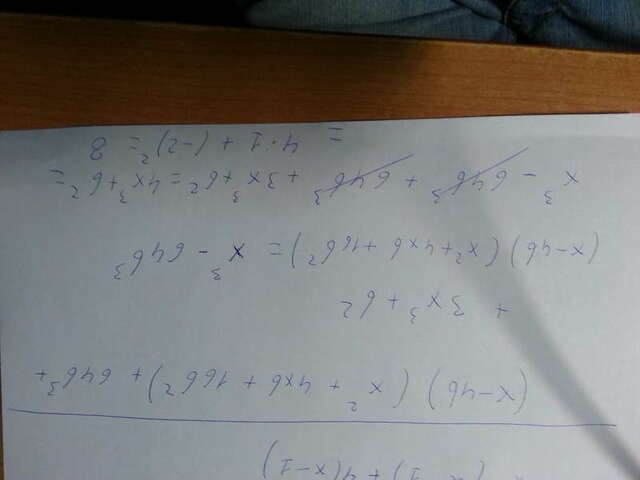 (x-1) + 4(x-1)
(x-4b)(x² + 4xb + 16b²) + 64b³ +
+ 3x³ + b²
(x-4b)(x²+4xb+16b²) = x³ - 64b³
x³ - 64b³ + 64b³ + 3x³ + b² = 4x³ + b² =
= 4·1 + (-2)² = 8